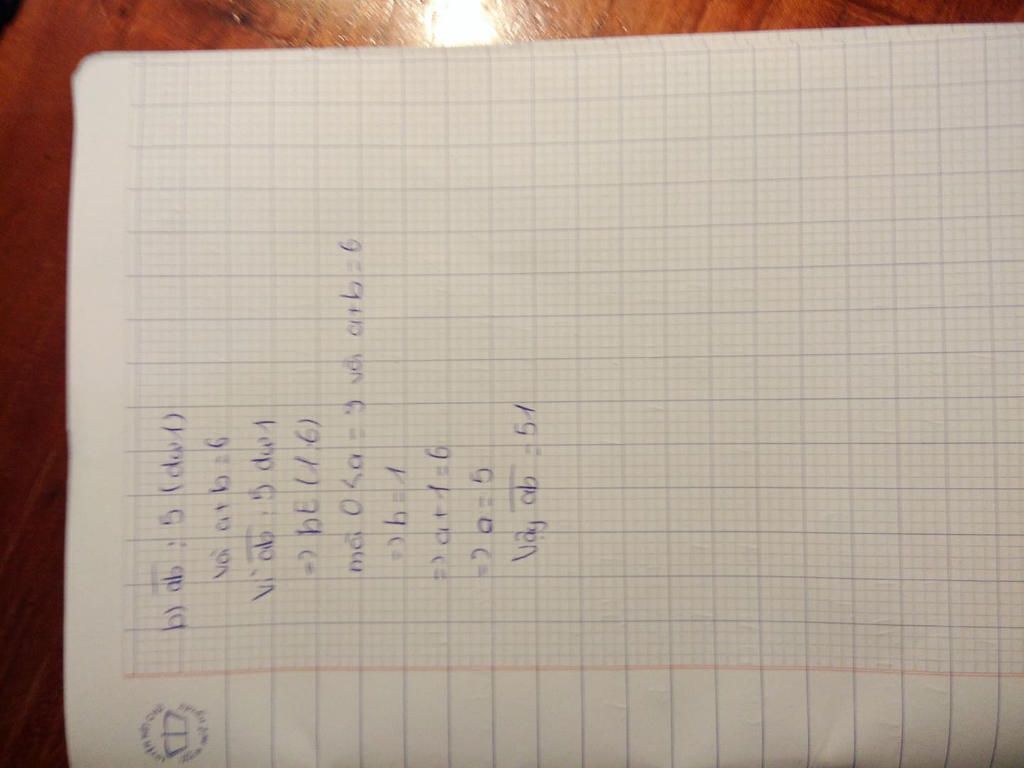 b) ab : 5 (dư 1)
với a + b = 6
Vì ab : 5 dư 1
=> b E (1; 6)
mà 0 < a = 9 với a+b = 6
=> b = 1
=> a + 1 = 6
=> a = 5
Vậy ab = 51